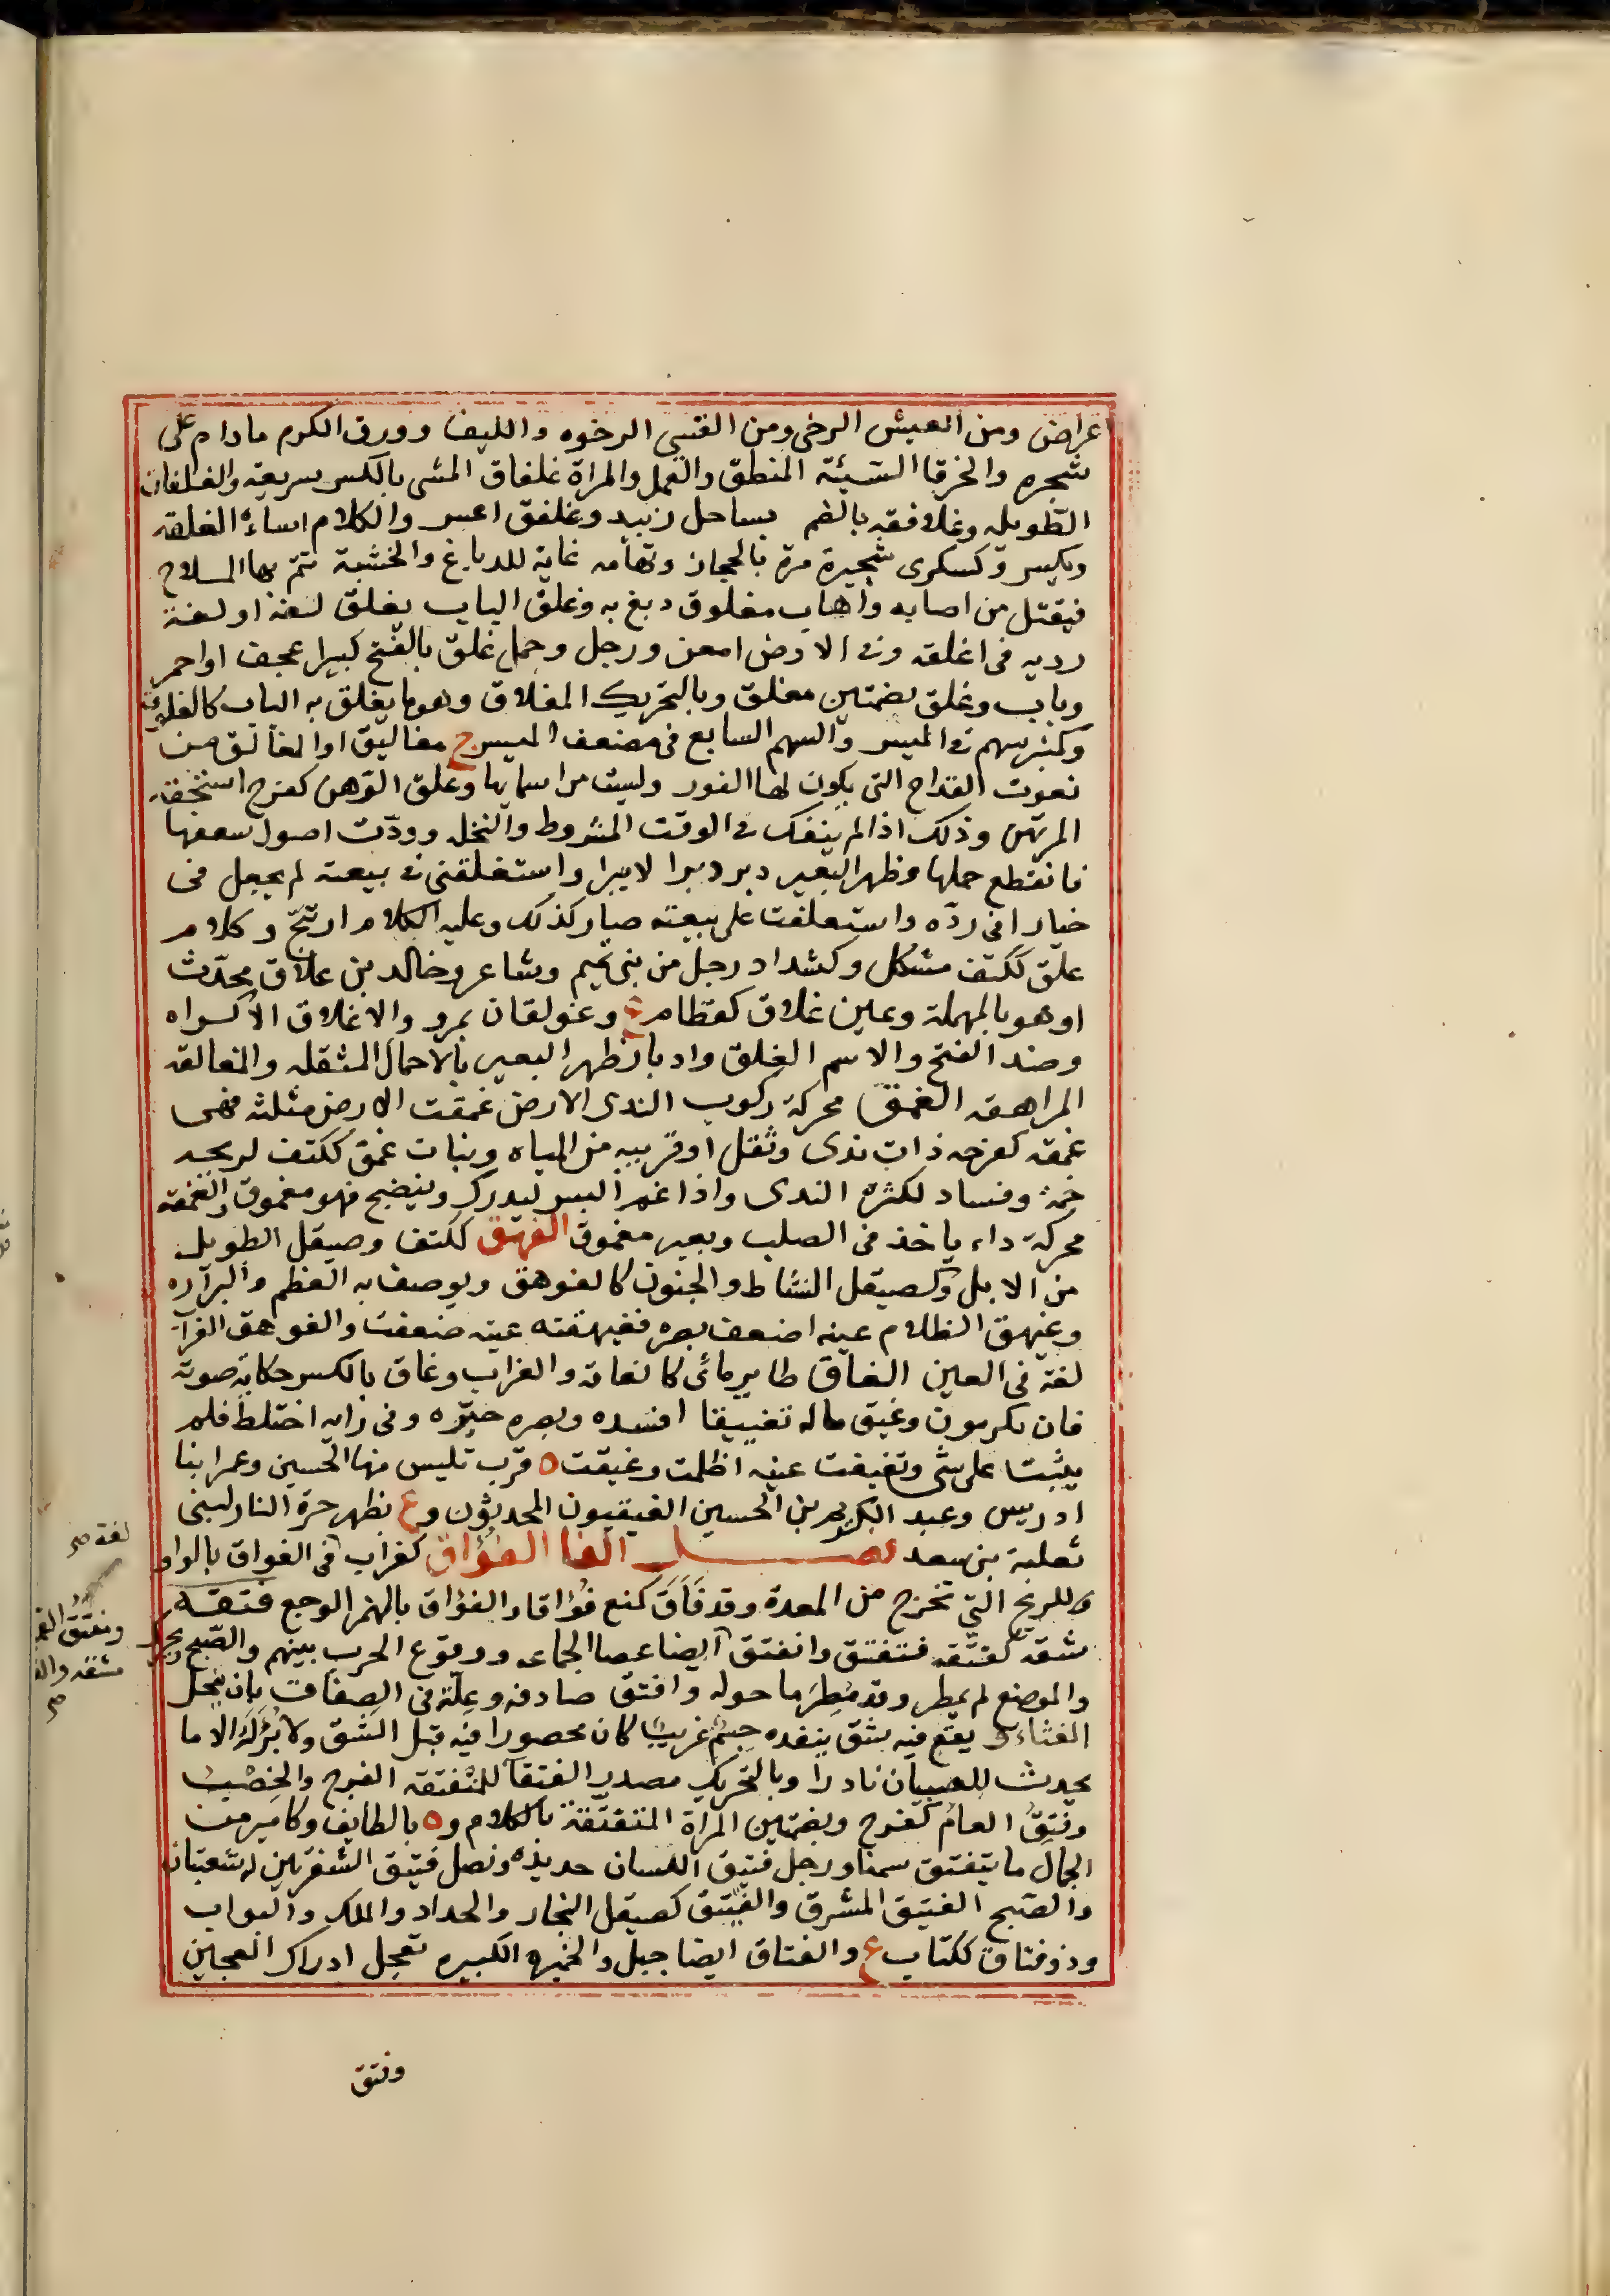 اعراض ومن العيش الرخى ومن القسى الرخوه والليف وورق الكرم مادام على
شجره والخرقا السّيئة المنطق والعمل والمراة غلفاق المشى بالكسر سريعته والغلفان
الطّويله وغلافقه بالضم بساحل زبيد وغلفق اعسر والكلام اساءه الغلقه
ويكسر وكسكرى شجيرة مرة بالحجاز وتهامه غاية للدباغ والخشبة تتم بها السلاح
فيقتل من اصابه واهاب مغلوق دبغ به وغلق الباب يغلق لغة او لغة
رديه فى اغلقه وفى الارض امعن ورجل وجمل غلق بالفتح كبير اعجف او احمر
وباب وغلق بضمتين مغلق وبالتحريك المغلاق وهو ما يغلق به الباب كالغلاق
وكمنبر سهم فى الميسر والسهم السابع فى مضعف الميسر ج مغاليق او المغالق من
نعوت القداح التى يكون لها الفوز وليست من اسمايها وغلق الرّهن كفرح استحقه
المرتهن وذلك اذا لم ينفك فى الوقت المشروط والنخلة ودوّت اصول سعفها
فانقطع حملها وظهر البعير دبر دبرا لا يبرا واستغلقنى فى بيعته لم يجعل فى
خيارا فى ردّه واستغلقت على بيعته صار كذلك وعليه الكلام ارتتج وكلام
غلق ككتف مشكل وكشداد رجل من بنى تميم وشاعر وخالد بن غلاق محدّث
او هو بالمهملة وعين غلاق كقطام ع وغولقان بمرو والاغلاق الاكراه
وضد الفتح والاسم الغلق وادبار ظهر البعير بالاحمال المثقله والمغالقه
المراهقه الغمق محركة ركوب الندى الارض غمقت الارض مثلثه فهى
غمقه كفرحه ذات ندى وثقل او قريبه من المياه ونبات غمق ككتف لريحه
خمة وفساد لكثرة الندى واذا غم البسر ليدرك وينضج فهو مغموق والغمقه
محركة داء ياخذ فى الصلب وبعير مغموق الغهق ككتف وصيقل الطويل
من الابل وكصيقل النشاط والجنون كالغوهق ويوصف به العظم والبرآره
وغيهق الظلام عينه اضعف بصره فغيهقته عينه ضعفت والغوهق الغراب
لغة فى العين الغاق طاير مائى كالغاقة والغراب وغاق بالكسر حكاية صوته
فان نكر نون وغيق ماله تغييقا افسده وبصره حيّره وفى رايه اختلط فلم
يثبت على شى وتغيقت عينه اظلمت وغيقت ه قرب تليس منها الحسين وعمر ابنا
ادريس وعبد الكريم بن الحسين الغيقيون المحدثون وع بظهر حرة النار لبنى
ثعلبة بن سعد فصل الفا الفؤاق كغراب فى الفواق بالواو
وللريح التّى تخرج من المعدة وقد فَأقَ كمنع فؤاقا والفؤاق بالهمز الوجع فتقه
شقه كفتّقه فتفتق وانفتق ايضا عصا الجماعه ووقوع الحرب بينهم والصّبح ويحرك
والموضع لم يمطر وقد مُطِرَ ما حوله وافتق صادفه وعلّة فى الصِفاق بان ينحل
الغشاء و يقع فيه شق ينفده جسم غريب كان محصورا فيه قبل الشق ولا يُبْرَأ الا ما
يحدث للصبيان نادرا وبالتحريك مصدر الفتقآ للمنفتقه الفرج والخصب
وفَتِقَ العامُ كفرح وبضمتين المراة المتفتقة بالكلام وه بالطايف وكامير من
الجمال ما يتفتق سمنا ورجل فتيق اللسان حديده ونصل فتيق الشفرتين له شعبتان
والصبح الفتيق المشرق والفيتق كصيقل النجار والحداد والملك والبواب
وذو فتاق ككتاب ع والفتاق ايضا جبل والخميره الكبيره تعجل ادراك العجين
وفتق
لغة صح